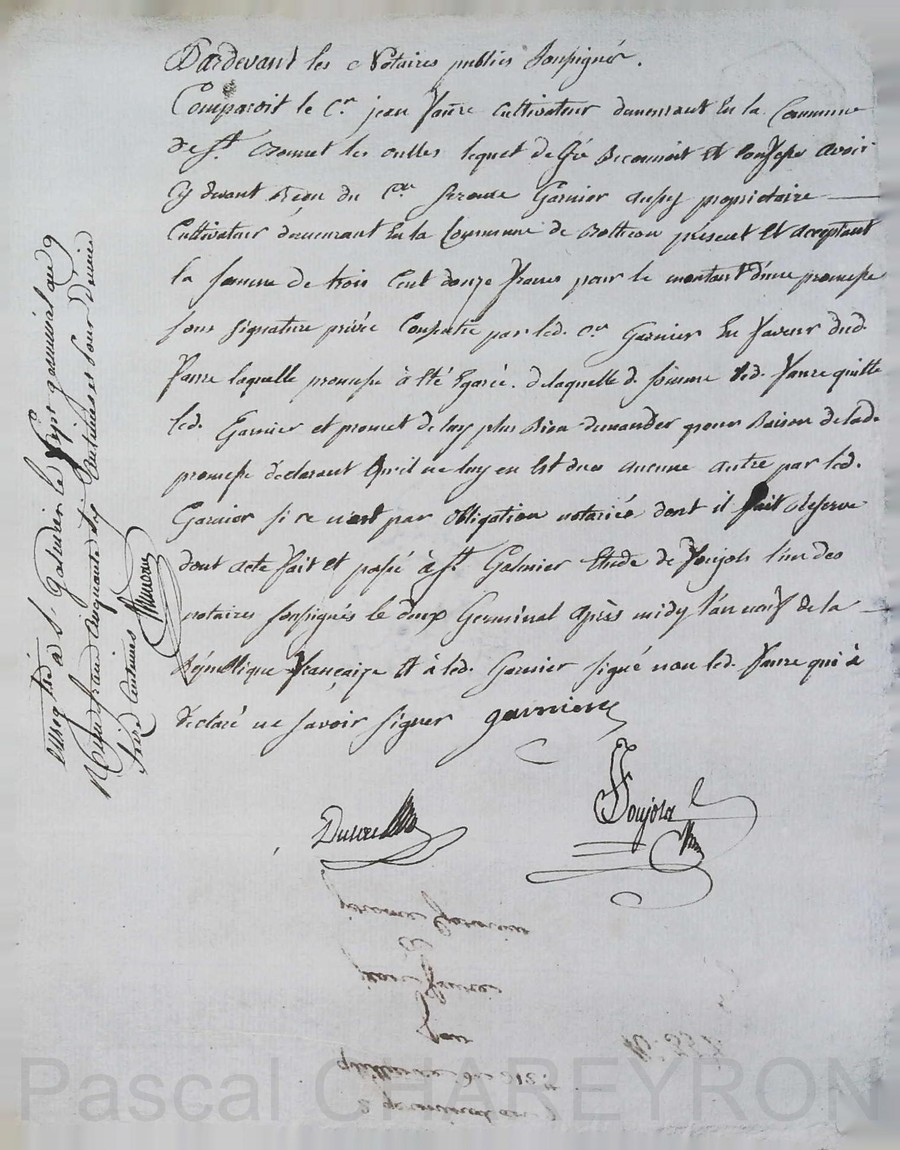 Pardevant les Notaires publics soussignés.
Comparoit le Cen jean faure Cultivateur demeurant En la Commune
de St. Bonnet les oulles lequel de Gré Reconnoit Et Confesse avoir
Cy devant Receu du Cen Garnier aussy proprietaire
Cultivateur demeurant En la Commune de présent Et acceptant
la somme de trois Cent douze francs pour le montant d'une promesse
sous signature privée Consentie par led. Cen Garnier En faveur dud.
faure laquelle promesse à Eté Egarée. de laquelle d. somme led. faure quitte
led. Garnier et promet de luy plus Rien demander pour Raison de lad.
promesse déclarant qu'il ne luy en Est due aucune autre par led.
Garnier si ce n'est par obligation notariée dont il fait Reserve
dont acte fait et passé à St. Galmier Etude de Poujols l'un des
notaires soussignés le deux Germinal après midy l'an neuf de la
République française Et à led. Garnier signé non led. faure qui à
déclaré ne savoir signer garnier
Poujols
Enregistré à St. Galmier le sept germinal an 9
Reçu francs cinquante six Centimes et pour dixieme
Centimes
jean faure
quittance de 312
2 germinal an
Pascal CHAREYRON